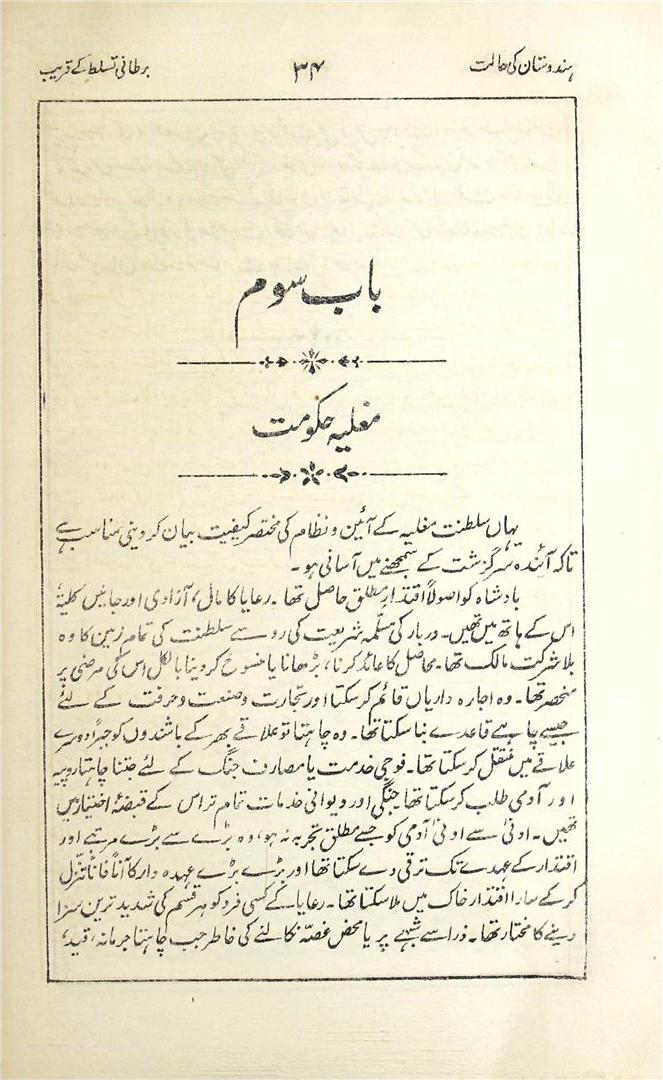 ہندوستان کی حالت
۳۴
برطانی تسلط کے قریب
باب سوم
مغلیہ حکومت
یہاں سلطنت مغلیہ کے آئین و نظام کی مختصر کیفیت بیان کر دینی مناسب ہے
تاکہ آئندہ سرگزشت کے سمجھنے میں آسانی ہو۔
بادشاہ کو اصولاً اقتدارِ مطلق حاصل تھا۔ رعایا کا مال، آزادی اور جانیں کلیۃً
اس کے ہاتھ میں تھیں۔ دربار کی مسلّمہ شریعت کی رو سے سلطنت کی تمام زمین کا وہ
بلا شرکت مالک تھا۔ محاصل کا عائد کرنا، بڑھانا یا منسوخ کر دینا بالکل اس کی مرضی پر
منحصر تھا۔ وہ اجارہ داریاں قائم کر سکتا اور تجارت و صنعت و حرفت کے لئے
جیسے چاہے قاعدے بنا سکتا تھا۔ وہ چاہتا تو علاقے بھر کے باشندوں کو جبراً دوسرے
علاقے میں منتقل کر سکتا تھا۔ فوجی خدمت یا مصارف جنگ کے لئے جتنا چاہتا روپیہ
اور آدمی طلب کر سکتا تھا۔ جنگی اور دیوانی خدمات تمام تر اس کے قبضۂ اختیار میں
تھیں۔ ادنیٰ سے ادنیٰ آدمی کو جسے مطلق تجربہ نہ ہو، وہ بڑے سے بڑے مرتبے اور
اقتدار کے عہدے تک ترقی دے سکتا تھا اور بڑے بڑے عہدہ دار کا آناً فاناً تنزل
کر کے سارا اقتدار خاک میں ملا سکتا تھا۔ رعایا کے کسی فرد کو ہر قسم کی شدید ترین سزا
دینے کا مختار تھا۔ ذرا سے شبہے پر یا محض غصّہ نکالنے کی خاطر جب چاہتا جرمانہ، قید،